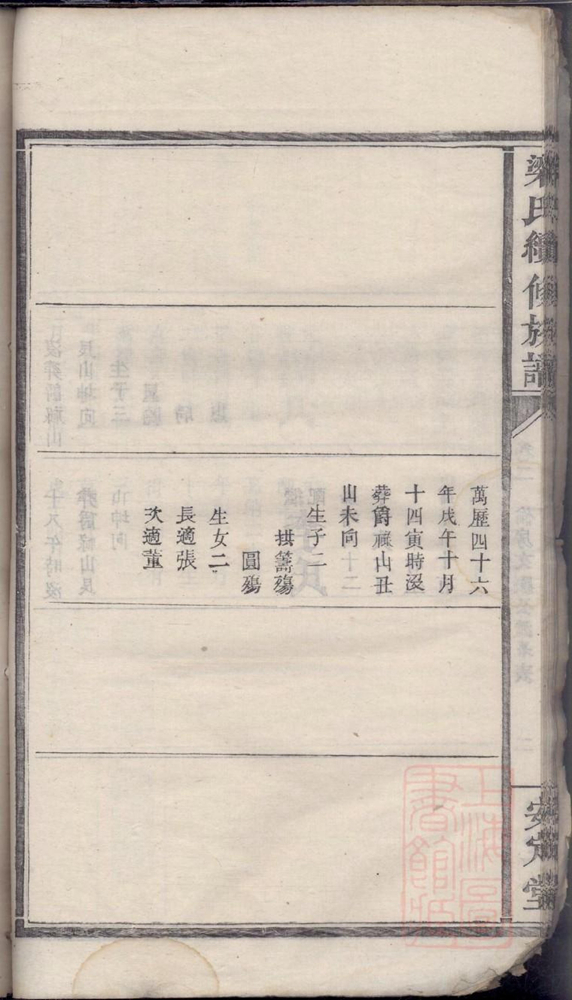 梁氏續修族譜
安定堂
萬歷四十六
年戊午十月
十四寅時沒
葬爵祿山丑
山未向
生子二
拱籌殤
圓殤
生女二
長適張
次適董
上海圖書館藏